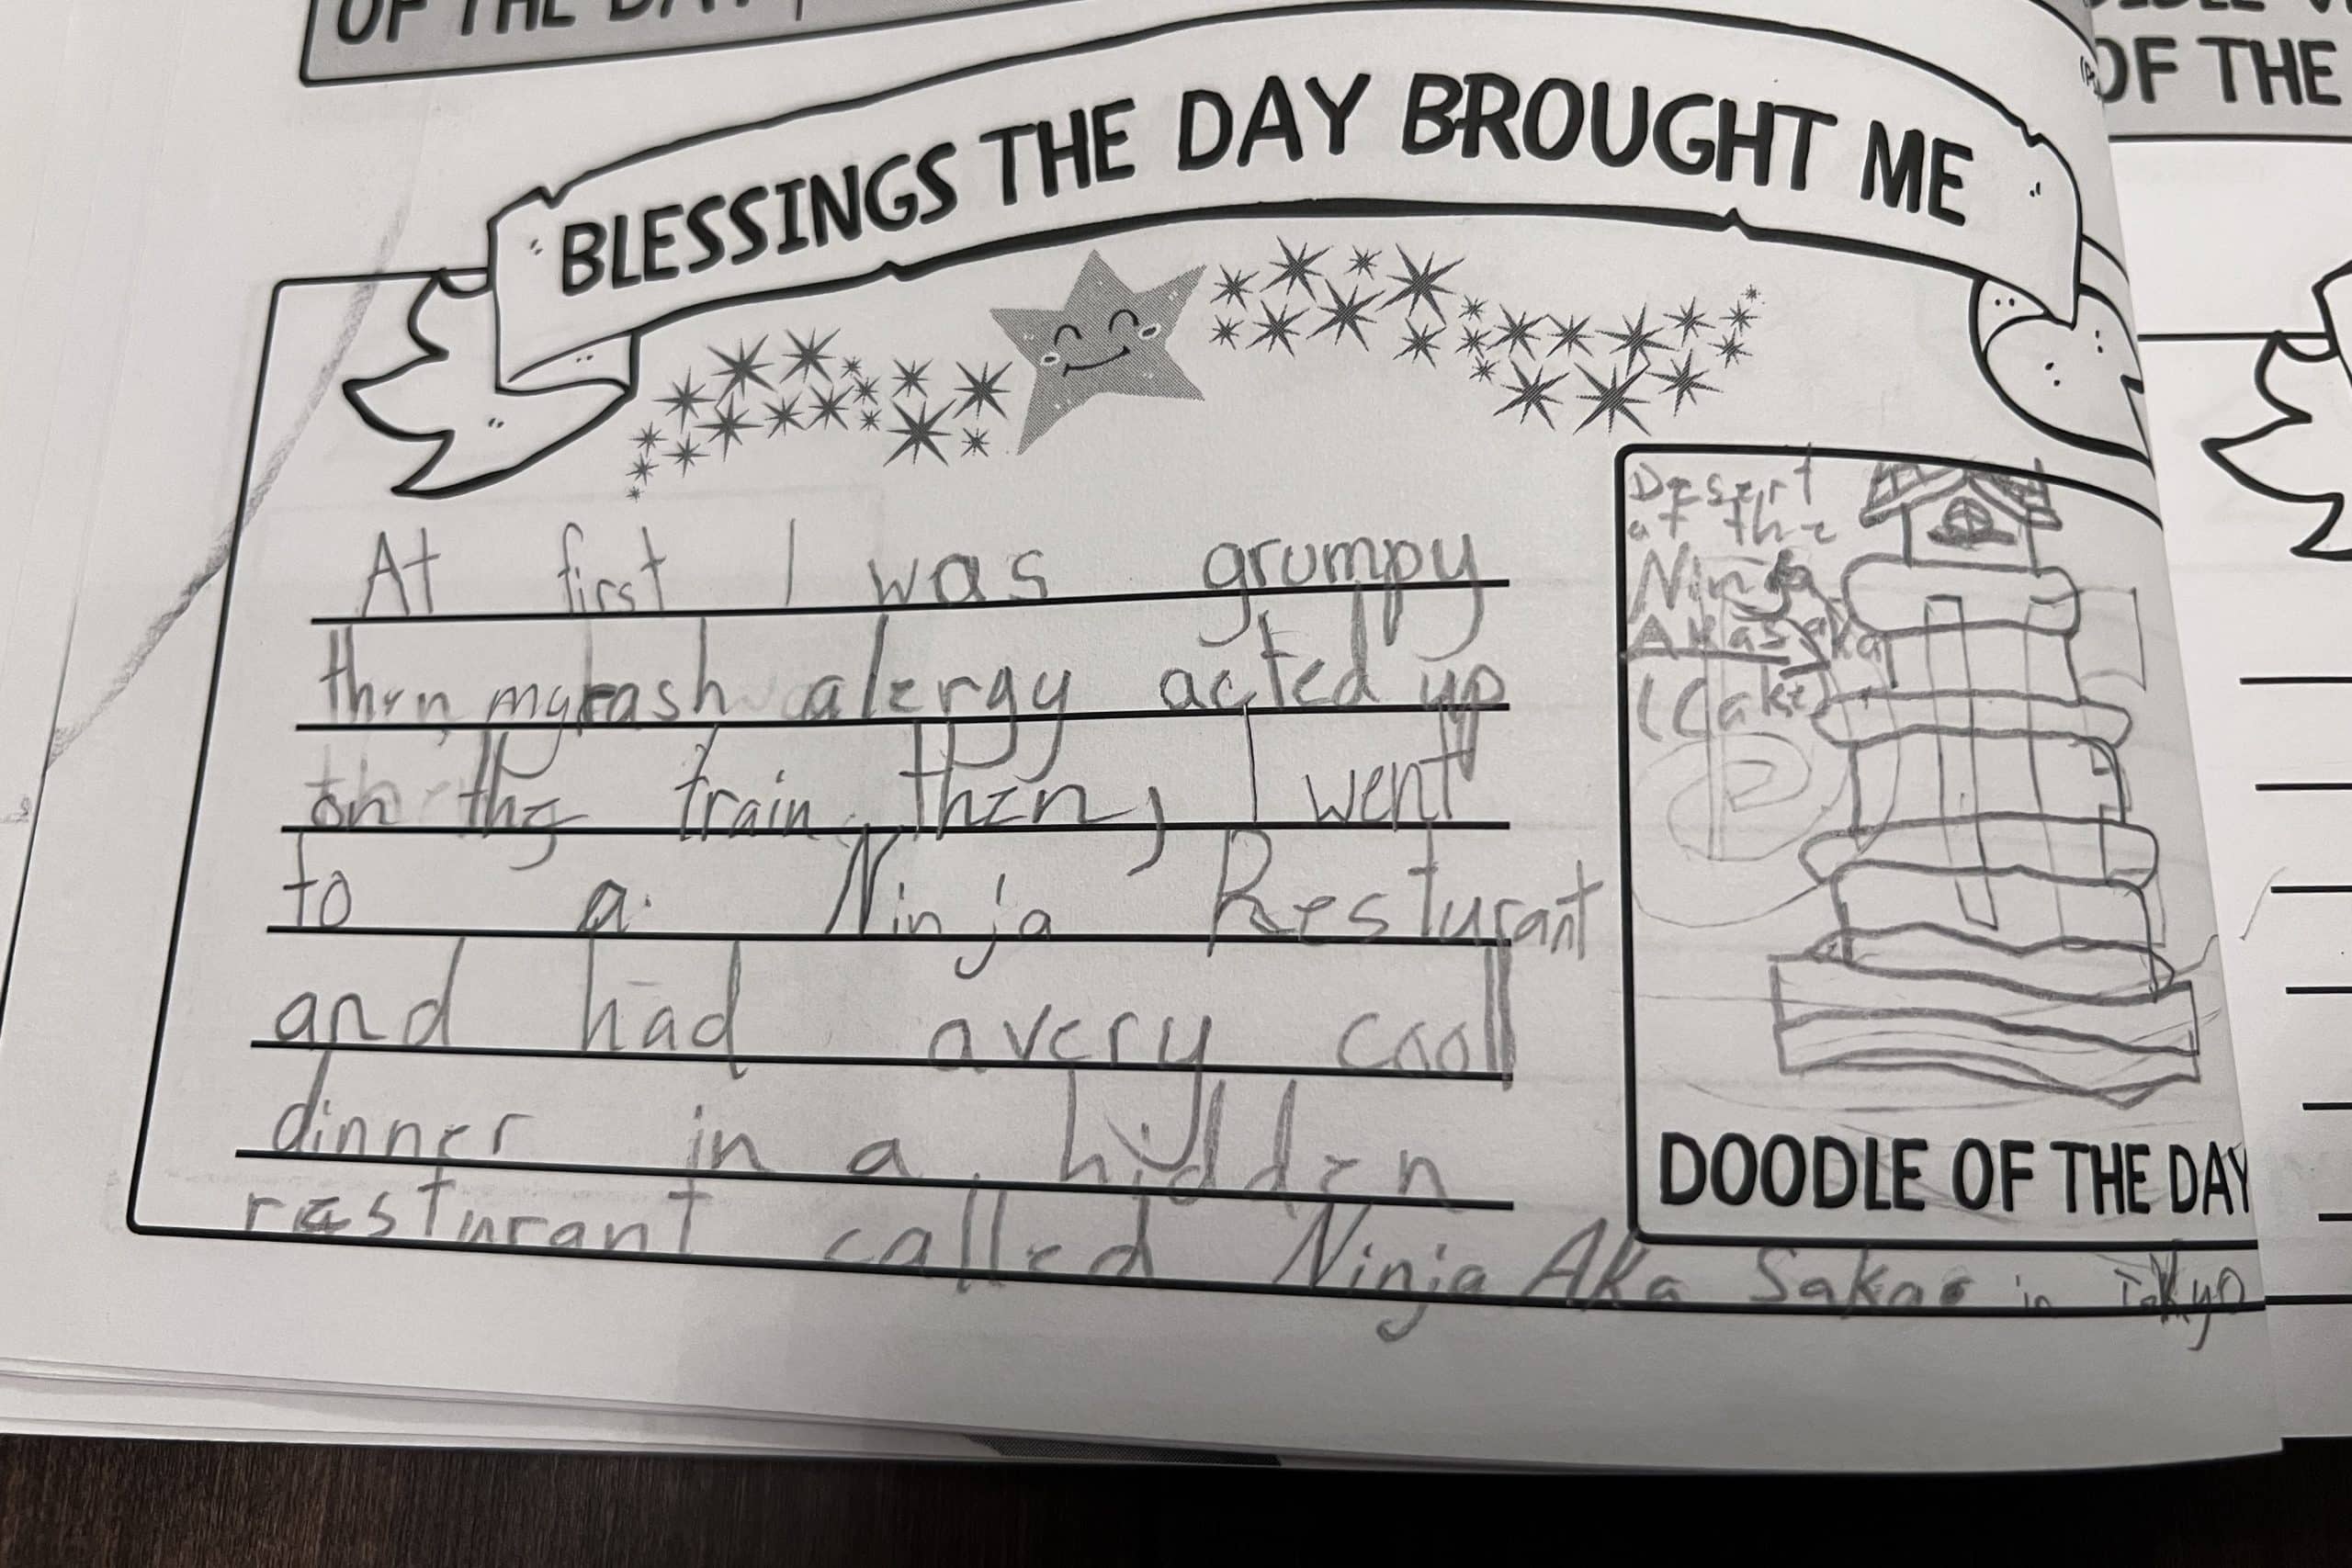 OF THE DAY
OF THE
BLESSINGS THE DAY BROUGHT ME
At first I was grumpy
then, my rash alergy acted up
on the train. then, I went
to a Ninja Resturant
and had a very cool
dinner in a hidden
resturant called Ninja Aka Saka in Tokyo
Desert
at the
Ninja
Akasaka
(Cake)
DOODLE OF THE DAY